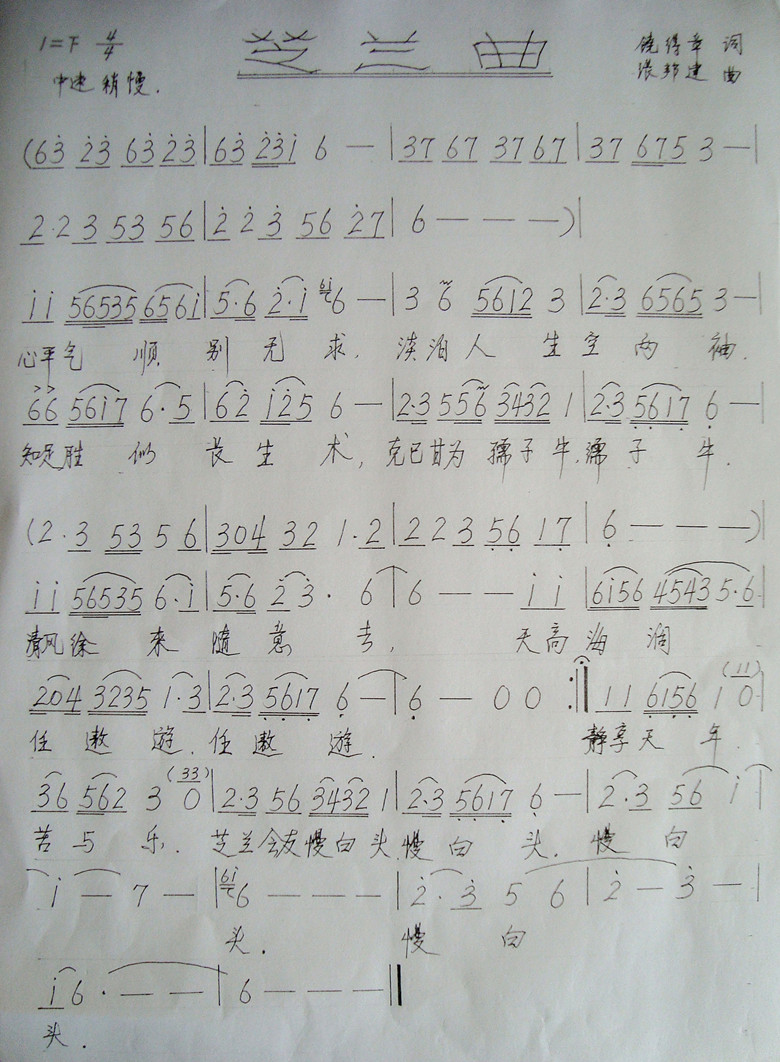 1=F 4/4 芝兰曲 饶得章 词
中速稍慢. 张邦建 曲
(63 23 63 23|63 231 6 —|37 67 37 67|37 675 3 —|
2·2 3 53 56|2 2 3 56 27|6 — — —)|
11 56535 6561|5·6 2·1 616 —|3 6 5612 3|2·3 6565 3 —|
心平气 顺 别 无 求. 淡泊人 生空两 袖.
66 5617 6·5|62 125 6 —|2·3 556 3432 1|2·3 5617 6 —|
知足胜 似 长生 术, 克己甘为孺子牛.孺子 牛.
(2·3 53 5 6|304 32 1·2|2 2 3 56 17|6 — — —)|
11 56535 6·1|5·6 23· 6|6 — — 1 1|6156 4543 5·6|
清风徐 来 随 意 去, 天高海 阔
204 3235 1·3|2·3 5617 6|6 — 0 0 :|| 11 6156 1 0 (11)|
任 遨 游.任 遨 游. 静享天 年.
36 562 3 0 (33)|2·3 56 3432 1|2·3 5617 6 —|2·3 56 1|
苦 与 乐. 芝兰会友慢白头.慢 白 头. 慢 白
1 — 7 —|616 — — —|2·3 5 6|2 — 3 —|
头. 慢 白
16· — —|6 — — —||
头.